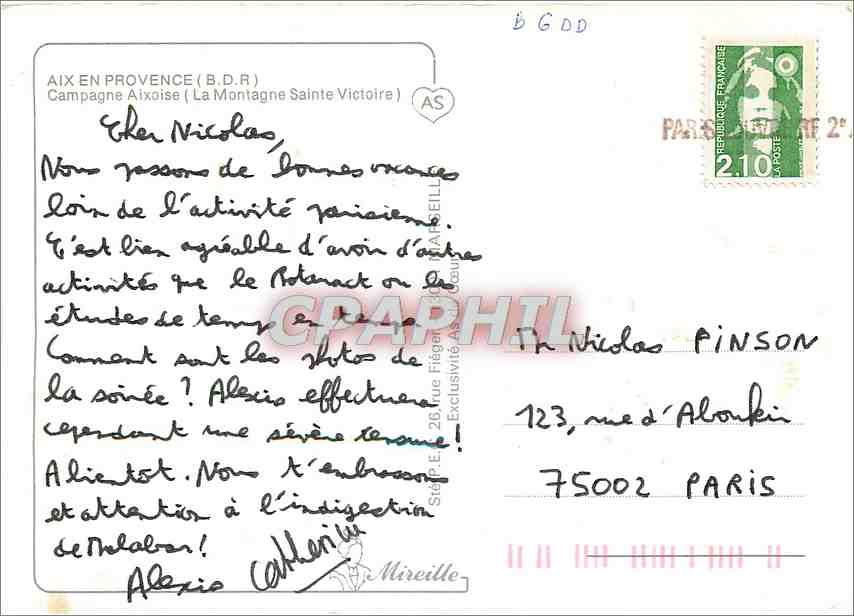 B G DD
AIX EN PROVENCE ( B.D.R )
Campagne Aixoise ( La Montagne Sainte Victoire )
AS
REPUBLIQUE FRANÇAISE
LA POSTE
2.10
PARIS LOUVRE RP 2e
Cher Nicolas,
Nous passons de bonnes vacances
loin de l'activité parisienne.
C'est bien agréable d'avoir d'autres
activités que le Rotaract ou les
études de temps en temps.
Comment sont les photos de
la soirée ? Alexis effectuera
cependant une sévère censure !
A bientôt. Nous t'embrassons
et attention à l'indigestion
de Malabar !
Alexis Catherine
Mr Nicolas PINSON
123, rue d'Aboukir
75002 PARIS
CPAPHIL
26, rue Fiéger MARSEILLE
Exclusivité As de Cœur
Mireille